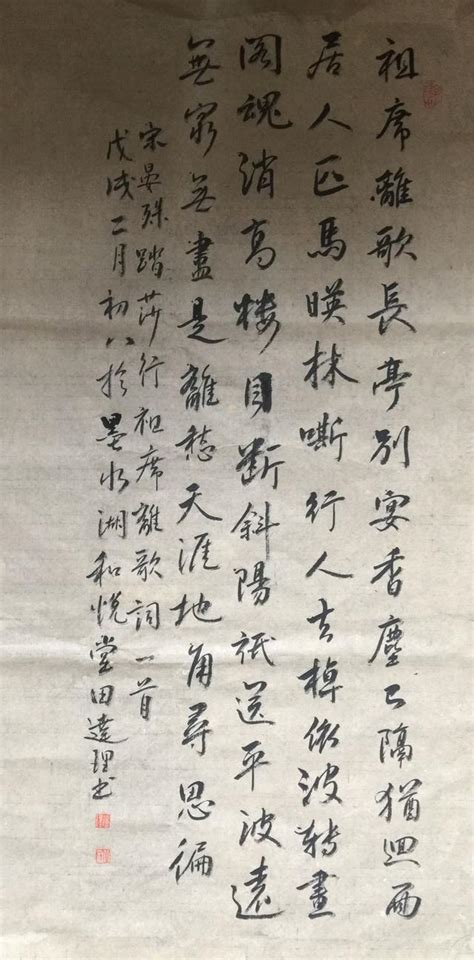 祖席離歌長亭別宴香塵已隔猶迴面
居人匹馬暎林嘶行人去棹依波轉畫
閣魂消高楼目断斜陽祇送平波遠
無窮無盡是離愁天涯地角尋思徧
宋晏殊踏莎行祖席離歌詞一首
戊戌二月初八於墨水湖和悦堂田達理书